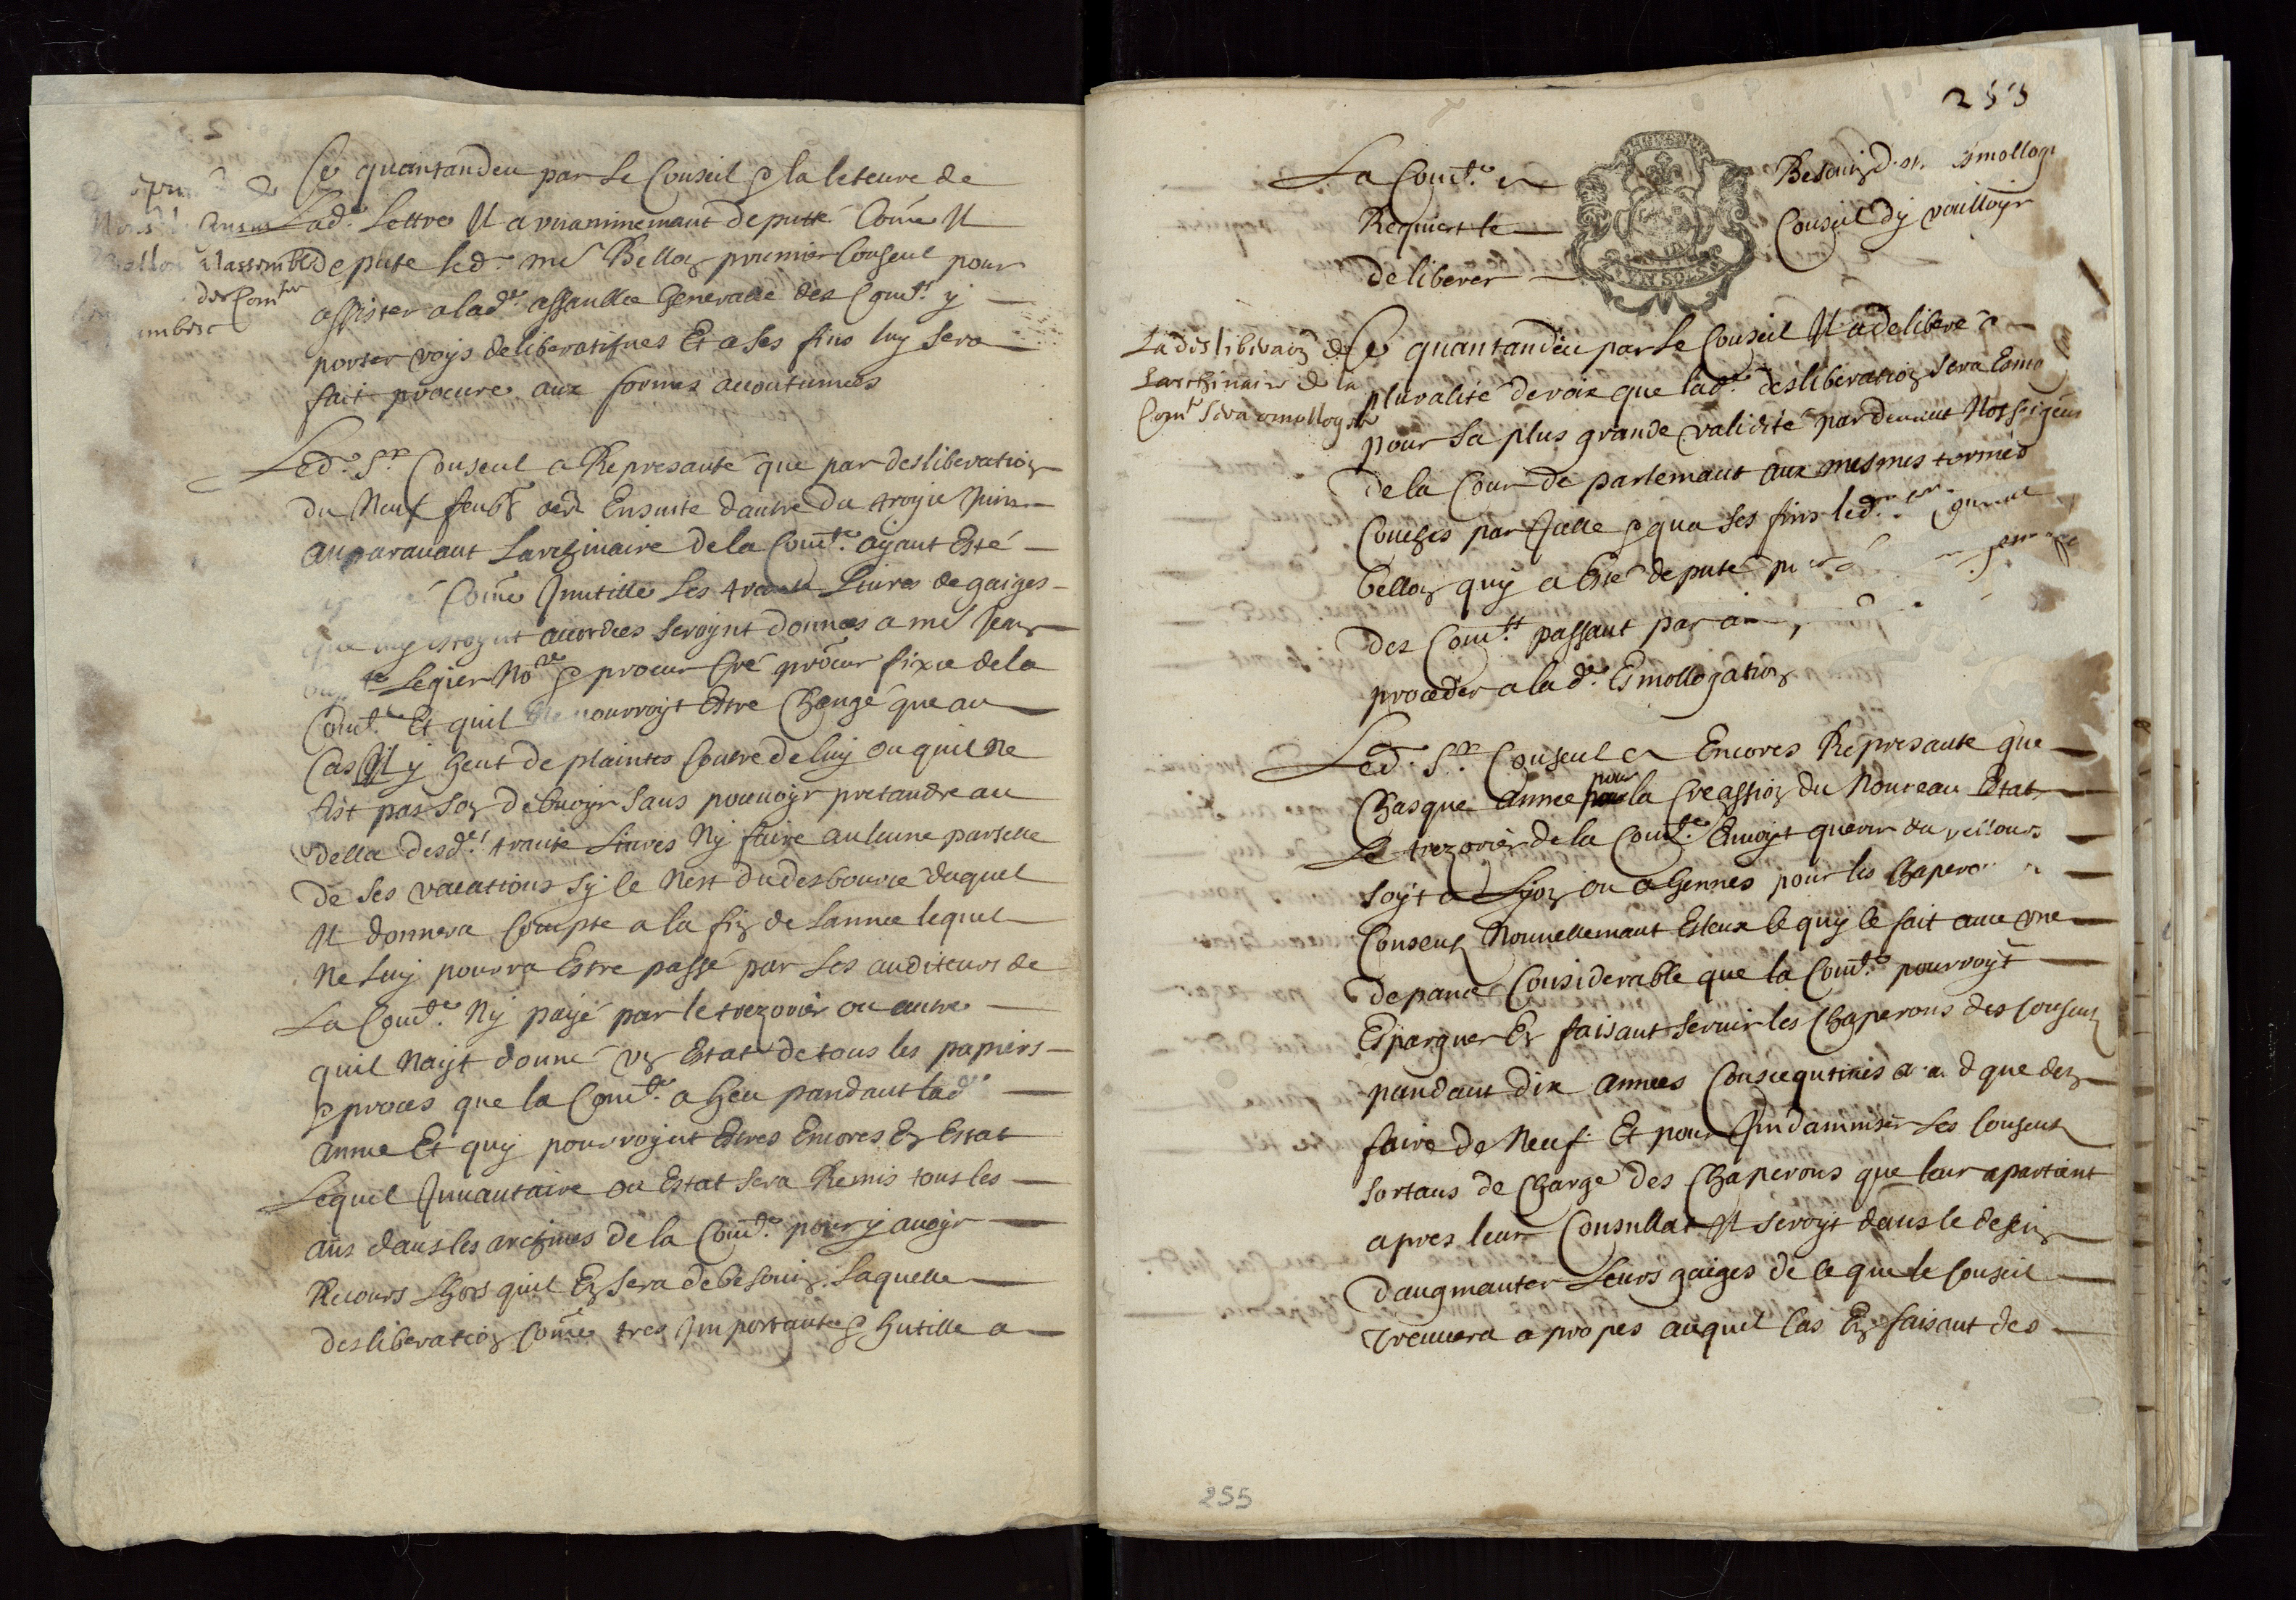 Ce quantandeu par le Conseil & la leteure de
lad. Lettre Il a vnaninnemant deputté Come Il
depute led. me Bellon premier Conseul pour
assister a lad.e assanblee Generalle des Com.tes y
porter voys deliberatifues Et a ses fins luy sera
fait procure aux formes acoutumees
a lassemblee
des Com.tes
Led. Sr. Conseul a Represanté que par desliberation
du Neuf feubr. dern Ensuite dautre du troyie Juin
auparauant Larchinaire de la Com.te ayant Esté
Come Jnutille Les trante Liures de gaiges
que luy estoynt acordees seroynt donnees a me Jean
Legier No.re & procur Cré procur fixe de la
Com.te Et quil ne pourroyt Estre Changé que au
Cas Il y heut de plaintes Contre de luy ou quil ne
fist pas son debuoyr sans pouuoyr pretandre au
della desd.es trante liures Ny faire aulcune parselle
de ses vacations sy le Nest du desbource duquel
Il donnera Compte a la fin de lannee lequel
Ne luy pourra Estre passé par les auditeurs de
La Com.te Ny payé par le trezorier ou autre
quil Nayt donné vn Estat de tous les papiers
& proces que la Com.te a heu pandant lad.
annee Et quy pourroyent Estres Encores En Estat
Lequel Jnuantaire ou Estat sera Remis tous les
ans dans les archiues de la Com.te pour y auoyr
Recours Lhors quil En sera de besouin. Laquelle
desliberation Come tres Jmportante & hutille a
253
La Com.te a Besouin d'est esmollog
Requiert le Conseil dy voulloyr
deliberer
La desliberaon de
Larchinaire de la
Com.te sera omollogee
Ce quantandeu par le Conseil Il a deliberé a
pluralite de voix que lad.e desliberation sera Esmo
pour sa plus grande validité par deuant Nosseigeurs
de la Cour de parlemant aux mesmes termes
Couches par Jcelle & qua ses fins led.
Bellon quy a Esté deputé
des Com.tes passant par
proceder a lad.e Esmollogation
Led. Sr. Conseul a Encores Represante que
Chasque annee pour la Creassion du Nouveau Estat
Le trezorier de la Com.te Enuoyt querir du vellours
soyt a Lyon ou a Gennes pour les Chapero
Conseuls Nouuellemant Esleux le quy le fait aue vne
depance Considerable que la Com.te pourroyt
Espargner En faisant seruir les Chaperons des Conseuls
pandant dix annees Conscequtiues que den
faire de Neuf. Et pour Jndamniser les Conseuls
sortans de Charge des Chaperons que leur apartient
apres leur Consullat Il seroyt dans le desein
daugmanter leurs gaiges de ce que le Conseil
treuuera a propos auquel Cas En faisant des
255